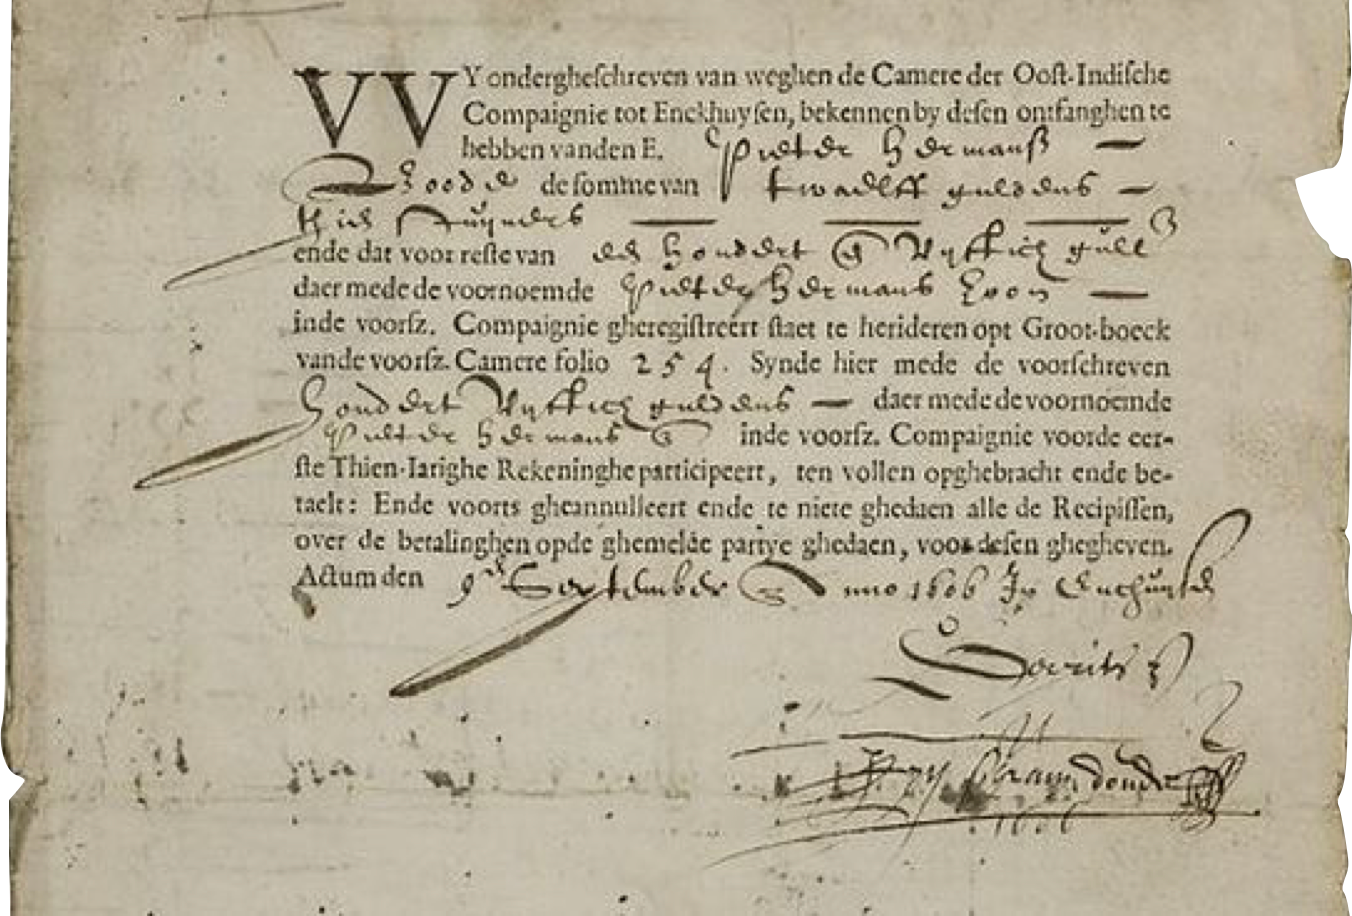 WY ondergheschreven van weghen de Camere der Oost-Indische
Compaignie tot Enckhuysen, bekennen by desen ontfanghen te
hebben vanden E. Pieter Hermansz —
de somme van twaelff guldens —
ende dat voor reste van een hondert en Vyfftich gull
daer mede de voornoemde Pieter Hermans zoon —
inde voorsz. Compaignie gheregistreert staet te herideren opt Groot-boeck
vande voorsz. Camere folio 254. Synde hier mede de voorschreven
hondert Vyfftich guldens — daer mede de voornoemde
Pieter Hermans inde voorsz. Compaignie voor de eer-
ste Thien-Iarighe Rekeninghe participeert, ten vollen opghebracht ende be-
taelt: Ende voorts gheannulleert ende te niete ghedaen alle de Recipissen,
over de betalinghen opde ghemelde partye ghedaen, voor desen ghegheven.
Actum den 9en September Anno 1606 In Enchuysen
1606